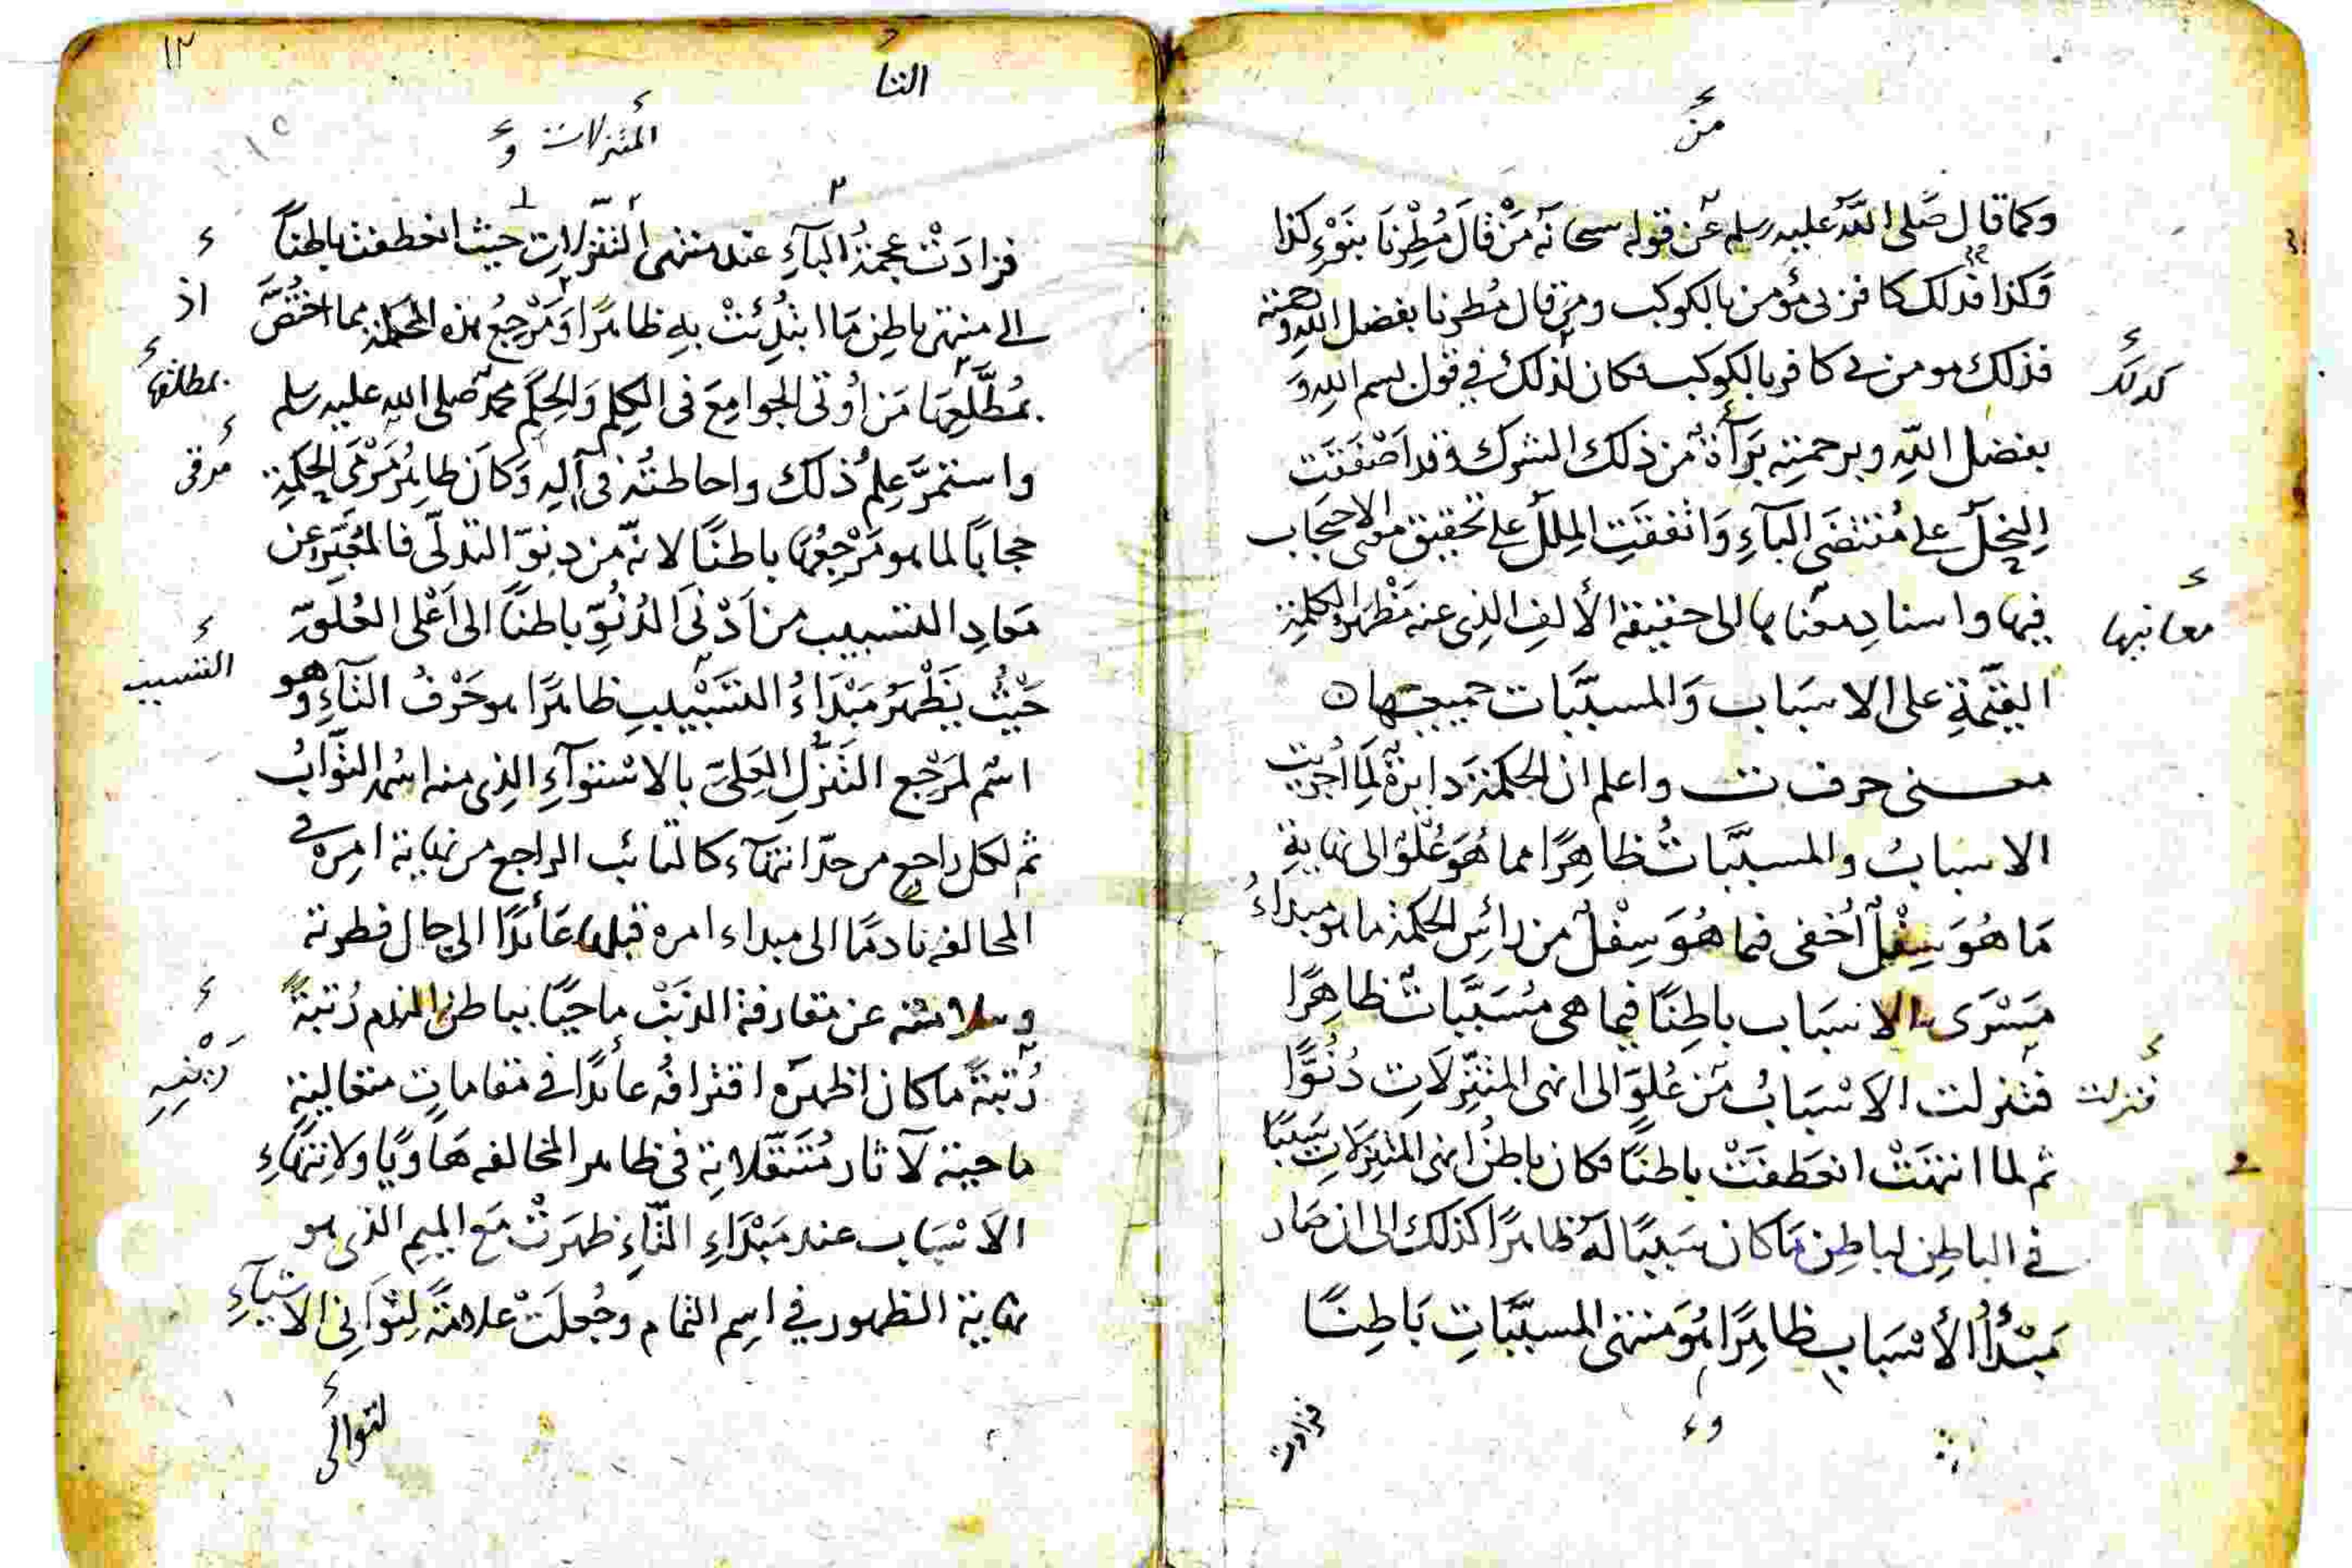 من
وكما قال صلى الله عليه وسلم عن قوله سبحانه مَنْ قَالَ مُطِرْنَا بنَوْءِ كذا
وكذا فذلك كافر بي مؤمن بالكوكب ومن قال مُطرنا بفضل الله ورحمته
فذلك مومن بي كافر بالكوكب فكان لذلك في قول بسم الله وَ
كذلك
بفضل اللهِ وبرحمتِهِ بَرَآةٌ من ذلك الشرك وقد اَصْفَقَت
النِحَلُ على مُقتضَى البَآءِ وَاتفقَتِ المِللُ على تحقيق معنى الاحتجاب
فيها واسنادِ معناها الى حقيقة الألفِ الذِى عنه مَظهرُ الكلمةِ
معانيها
القيّمةِ على الاسبَاب وَالمسبَّبات جميعها ه
معنى حرف ت واعلم ان الحكمةَ دايرةٌ لَمِا اُجريت
الاسبابُ والمسبَّباتُ ظاهِرًا مما هُوَ عُلْوٌ الى نهايةِ
مَا هُوَ سِفْلٌ أخفى فيما هُوَ سِفْلٌ من رأسِ الحكمة ما هو مبداءُ
مَسْرَى الاسبَاب باطِنًا فيما هى مُسَبَّباتٌ ظاهِرًا
فتنزلت الاَسْبَابُ مَن عُلوٍّ الى انهى المتنزّلَاتِ دُنُوًّا
فتزلت
ثم لما انتهَتْ انعَطفَتْ باطنًا فكان باطنُ انهى المتنزّلَاتِ سَبَبًا
في الباطِنِ لباطِنِ مَا كان سَببًا لَهُ ظاهرًا كذلك الى ان صَار
مَبْدَأُ الأسْبَابِ ظاهِرًا هُوَ منتهى المسبَّبَاتِ بَاطِنًا
و
فزادت
١٢
التا
المتنزلات و
فزادَتْ حكمةُ البآءِ عند منتهى التنزّلاتِ حيث انعطفت باطِنًا
الى منتهى باطِنِ مَا ابتُدِئَتْ بِهِ ظاهرًا وَمَرْجِعُ هذه الحكمة مما اختُصَّ
اذ
بمُطَّلَعِهَا مَن اُوتى الجوامِعَ فى الكلِم وَالحِكَم محمد صلى الله عليه وسلم
بمطلعها
واستمرَّ عِلمُ ذلك واحاطتُه فى آلِهِ وَكانَ ظاهِرُ مَرْقَى الحِكَمةِ
مرقى
حجابًا لما هو مَرْجِعُها باطنًا لانّه من دنوّ التدلّى فالمُعَبِّر عن
مَعادِ التسبيب من اَدْنَى الدُنُوِّ باطنًا الى اَعْلى العُلوِّ
حَيْثُ يَظْهَرُ مَبْدَاءُ التَسَبْيبِ ظاهرًا هو حَرْفُ التآءِ وهو
التسبيب
اسْم لمَرْجع التَنَزّلِ العَلىّ بالاسْتوآءِ الذِى منه اسْمه التوّابُ
ثم لكل راجع من حدّ انتهآء كالتائب الراجع من نهاية امره في
المخالفه نادمًا الى مبداء امره قبلها عَائدًا الى حال فطرته
وسلامته عن مقارفة الذنَبْ ماحيًا بباطن الندم رُتبةً
رُتبةً ما كان اظهرَه اقترافُه عائدًا في مقاماتٍ متعاليةٍ
ماحية لآثار مُتَنَقّلاتِه فى ظاهر المخالفه هَاويًا ولانتهَاءِ
الاَسْبَاب عند مَبْدَاءِ التّاءِ ظهرَتْ مَع الميمِ الذى هو
نهاية الظهور في اسِم التمام وجُعلَتْ علامةً لتوَانى الاشيآءِ
لتوالى